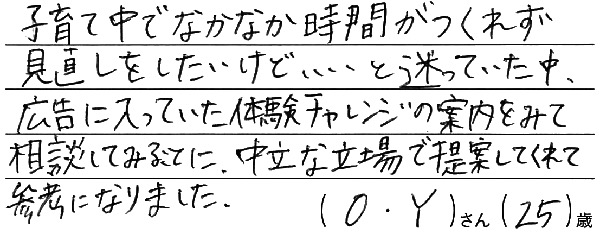 子育て中でなかなか時間がつくれず
見直しをしたいけど、、、、と迷っていた中、
広告に入っていた体験チャレンジの案内をみて
相談してみることに、中立な立場で提案してくれて
参考になりました。 (O・Y)さん(25)歳